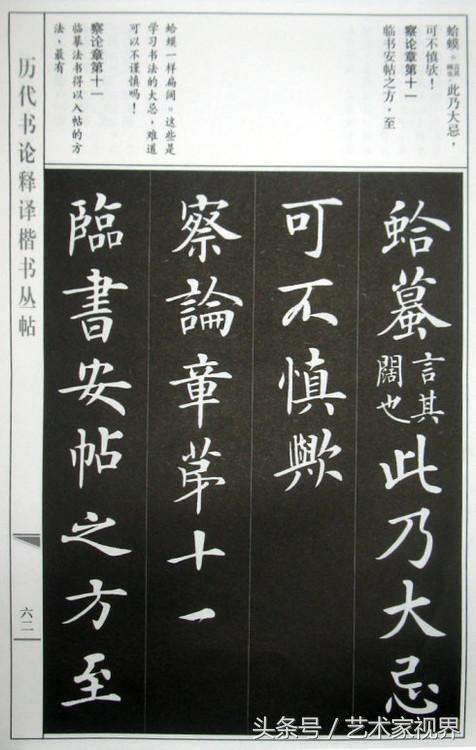 蛤蟆。言其阔也。此乃大忌，
可不慎欤！
察论章第十一
临书安帖之方，至
蛤蟆一样扁阔。这些是
学习书法的大忌，难道
可以不谨慎吗！
察论章第十一
临摹法书得以入帖的方
法，最有
蛤蟇言其闊也此乃大忌
可不慎歟
察論章第十一
臨書安帖之方至
历代书论释译楷书丛帖
六二
头条号／艺术家视界